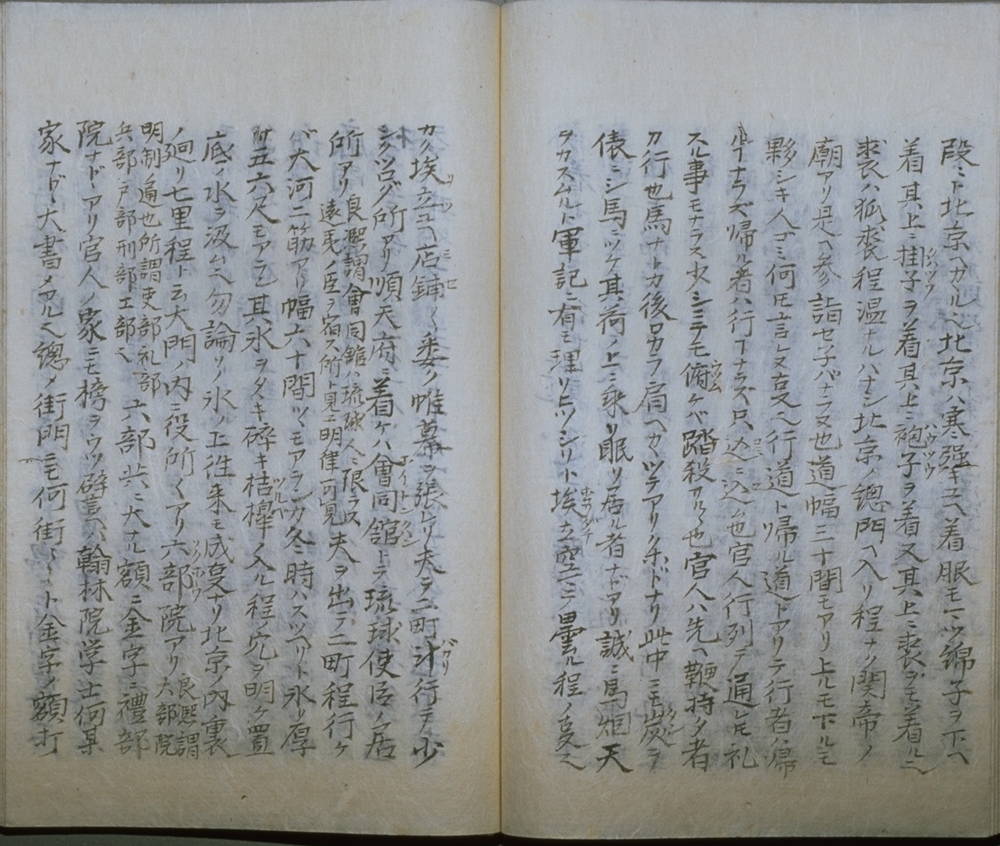 段々ト北京ヘ上ル也北京ハ寒強キユヘ着服モ一ツ錦子ヲ下ヘ
着其上ニ掛子ヲ着其上ニ袍子ヲ着又其上ニ裘ヲモ着ル也
裘ハ狐裘程温ナルハナシ北京ノ總門ヘ入リ程ナク関帝ノ
廟アリ是ヘ参詣セ子バナラヌ也道幅三十間モアリ上ルモ下ルモ
夥シキ人ゴミ何トモ言レヌ叓ヘ行道ト帰ル道トアリテ行者ハ帰
ナラズ帰ル者ハ行ナラス只込ニ込也官人行列テ通レ𪜈礼
スル事モナラス少シニテモ俯ケバ踏殺サルヽ也官人ハ先ヘ鞭持タ者
カ行也馬ナトカ後ロカラ肩ヘカミツテアリクホドナリ此中ニモ炭ヲ
俵ニシ馬ニツケ其荷ノ上ニ乗リ眠リ居ル者ナドアリ誠ニ馬烟天
ヲカスムルト軍記ニ有モ理リトツシリト埃立空ニテ曇ル程ノ叓ヘ
カク埃立ユヘ店鋪〱婁ノ帷幕ヲ張レリ夫ヲ二町計行テ少
シクツログ所アリ順天府ニ着ケハ會同館トテ琉球使臣ノ居
所アリ良凞謂會同館ハ琉球人ニ限ラス
遠夷ノ臣ヲ宿ス所ト見ユ明律可見
夫ヲ出テ二町程行ケ
バ大河二筋アリ幅六十間ツヽモアランカ冬時ハスツヘリト氷リ厚
サ五六尺モアラン其氷ヲタヽキ碎キ桔槹ノ入ル程ノ穴ヲ明ケ置
底ノ水ヲ汲ムヘ勿論ソノ氷ノ上徃来モ成叓ナリ北京ノ内裏
ノ廻リ七里程ト云大門ノ内ニ役所〱アリ六部院アリ良凞謂
六部院
明制ノ通也所謂吏部礼部
兵部戸部刑部工部ヘ
六部共ニ大ナル額ニ金字ニ禮部
院ナドヽアリ官人ノ家ニモ榜ヲウツ譬ヘハ翰林院学士何某
家ナドヽ大書ノアルヘ總ノ街門ニモ何街〱ト金字ノ額打